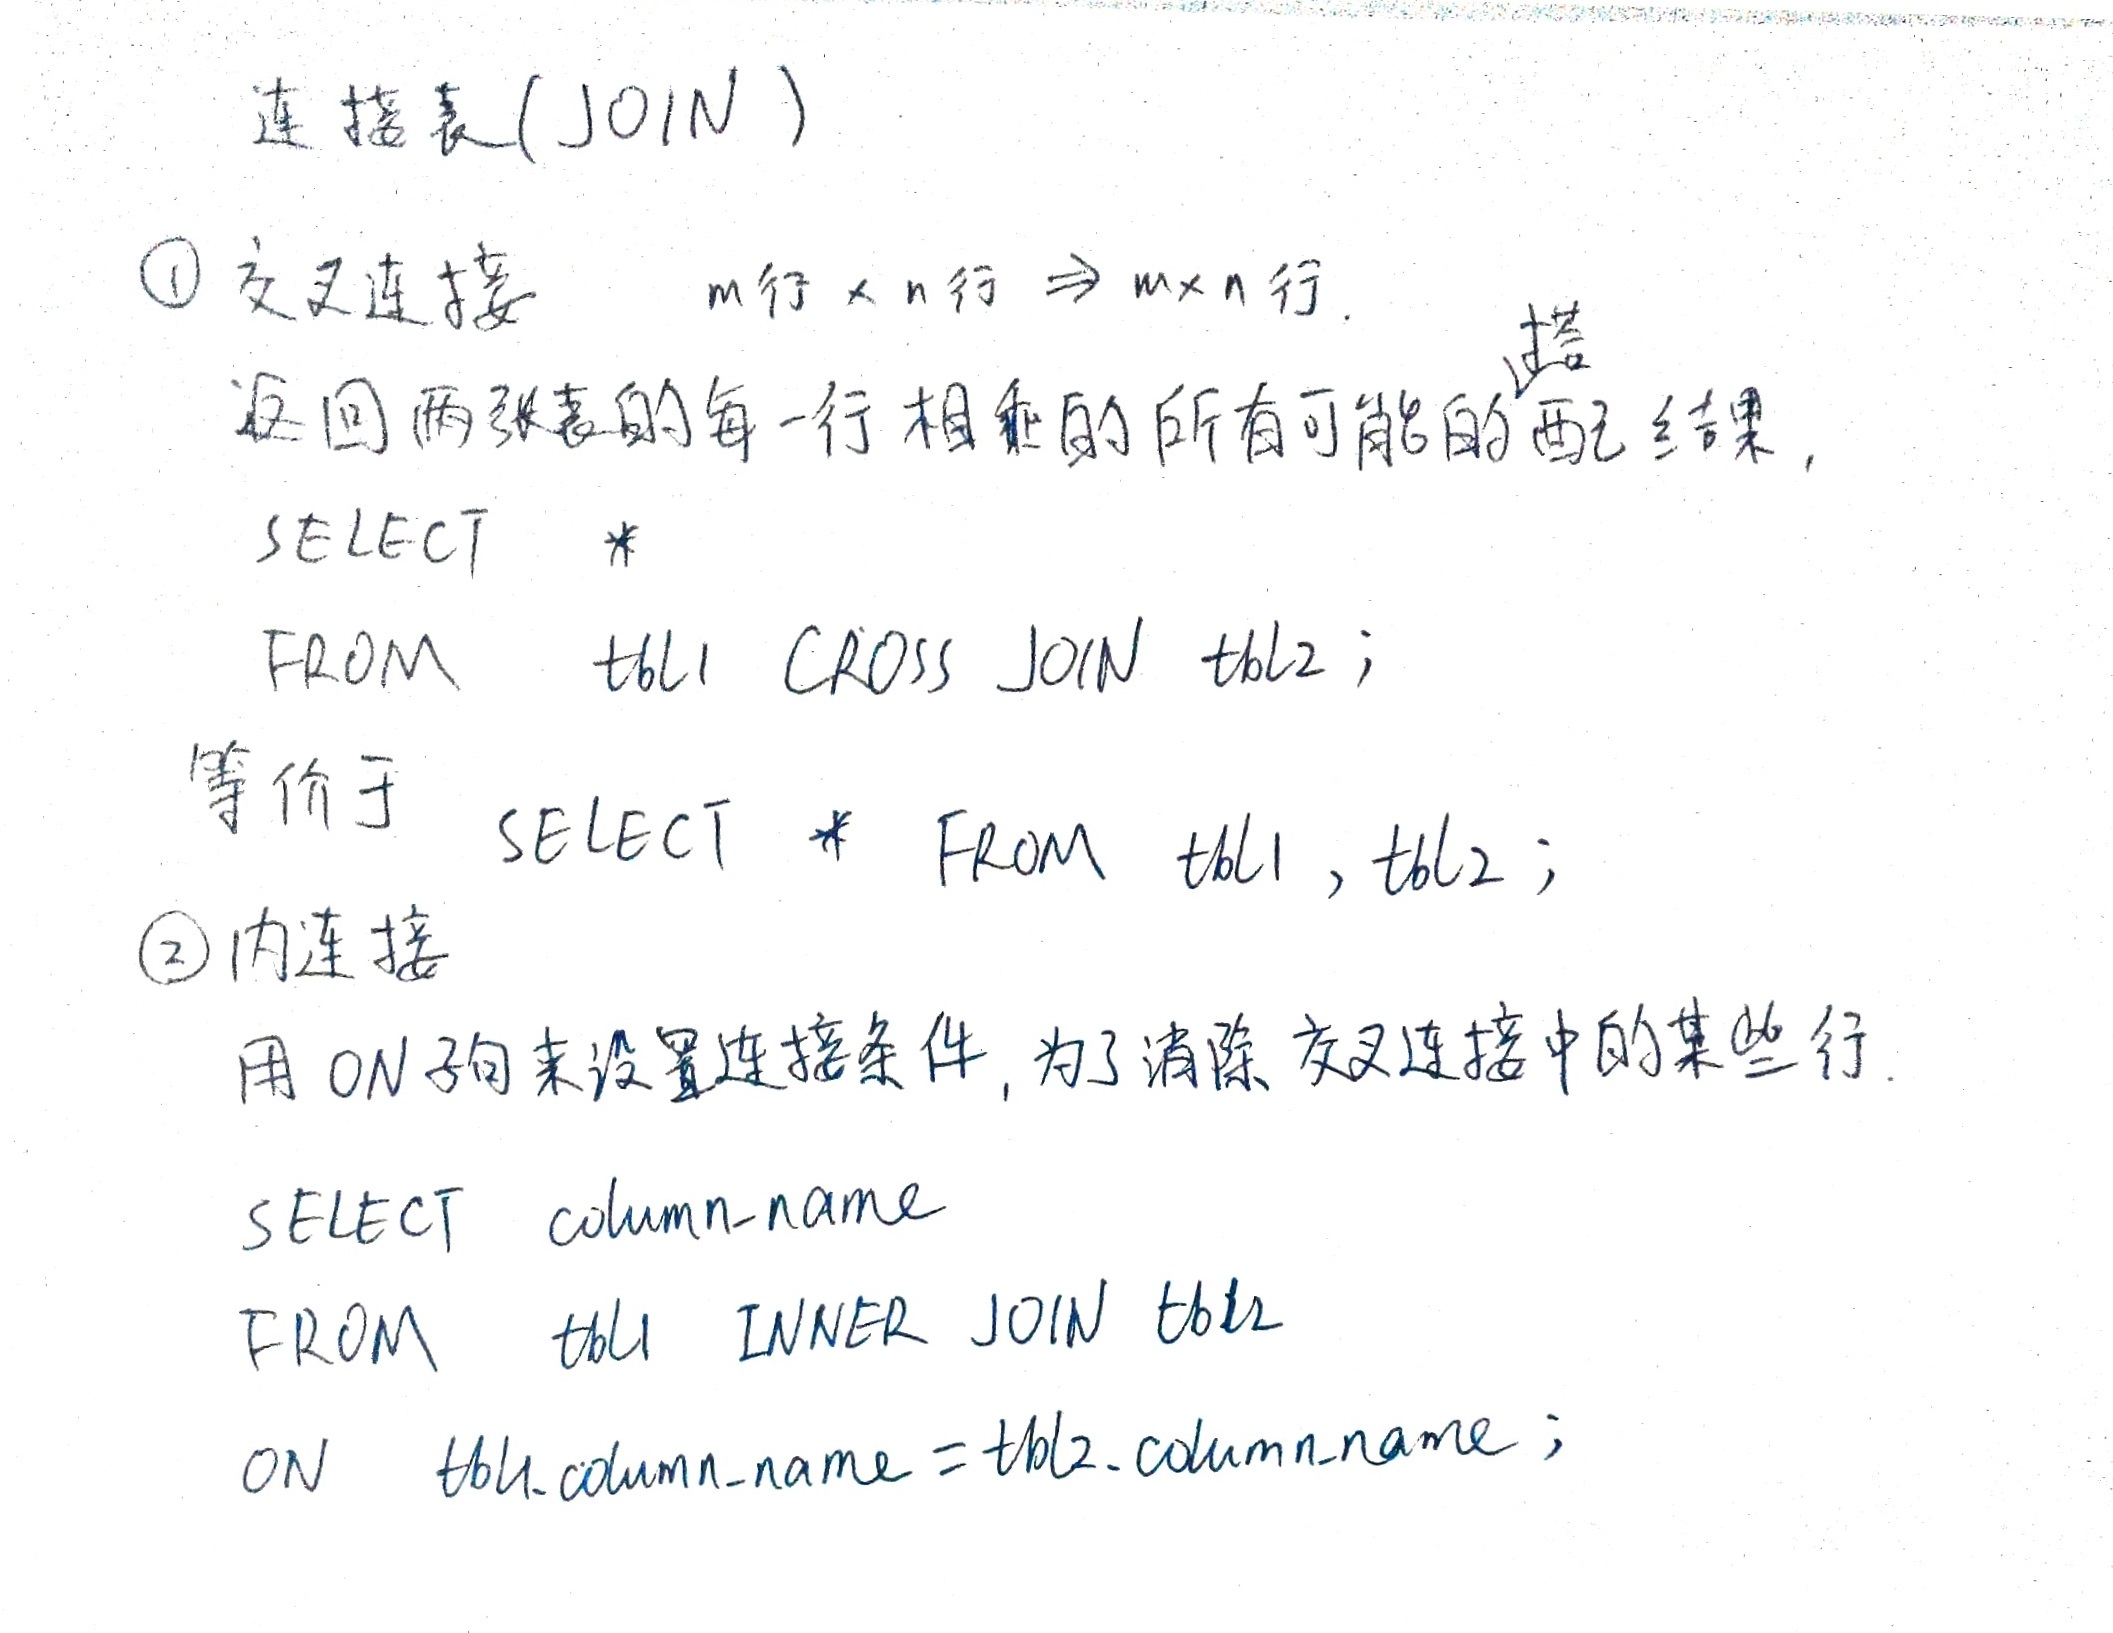 连接表(JOIN)
① 交叉连接 m行 × n行 ⇒ m×n 行.
返回两张表的每一行相乘的所有可能的搭配结果,
SELECT *
FROM tbl1 CROSS JOIN tbl2;
等价于 SELECT * FROM tbl1, tbl2;
② 内连接
用ON子句来设置连接条件,为了消除交叉连接中的某些行.
SELECT column_name
FROM tbl1 INNER JOIN tbl2
ON tbl1.column_name = tbl2.column_name;